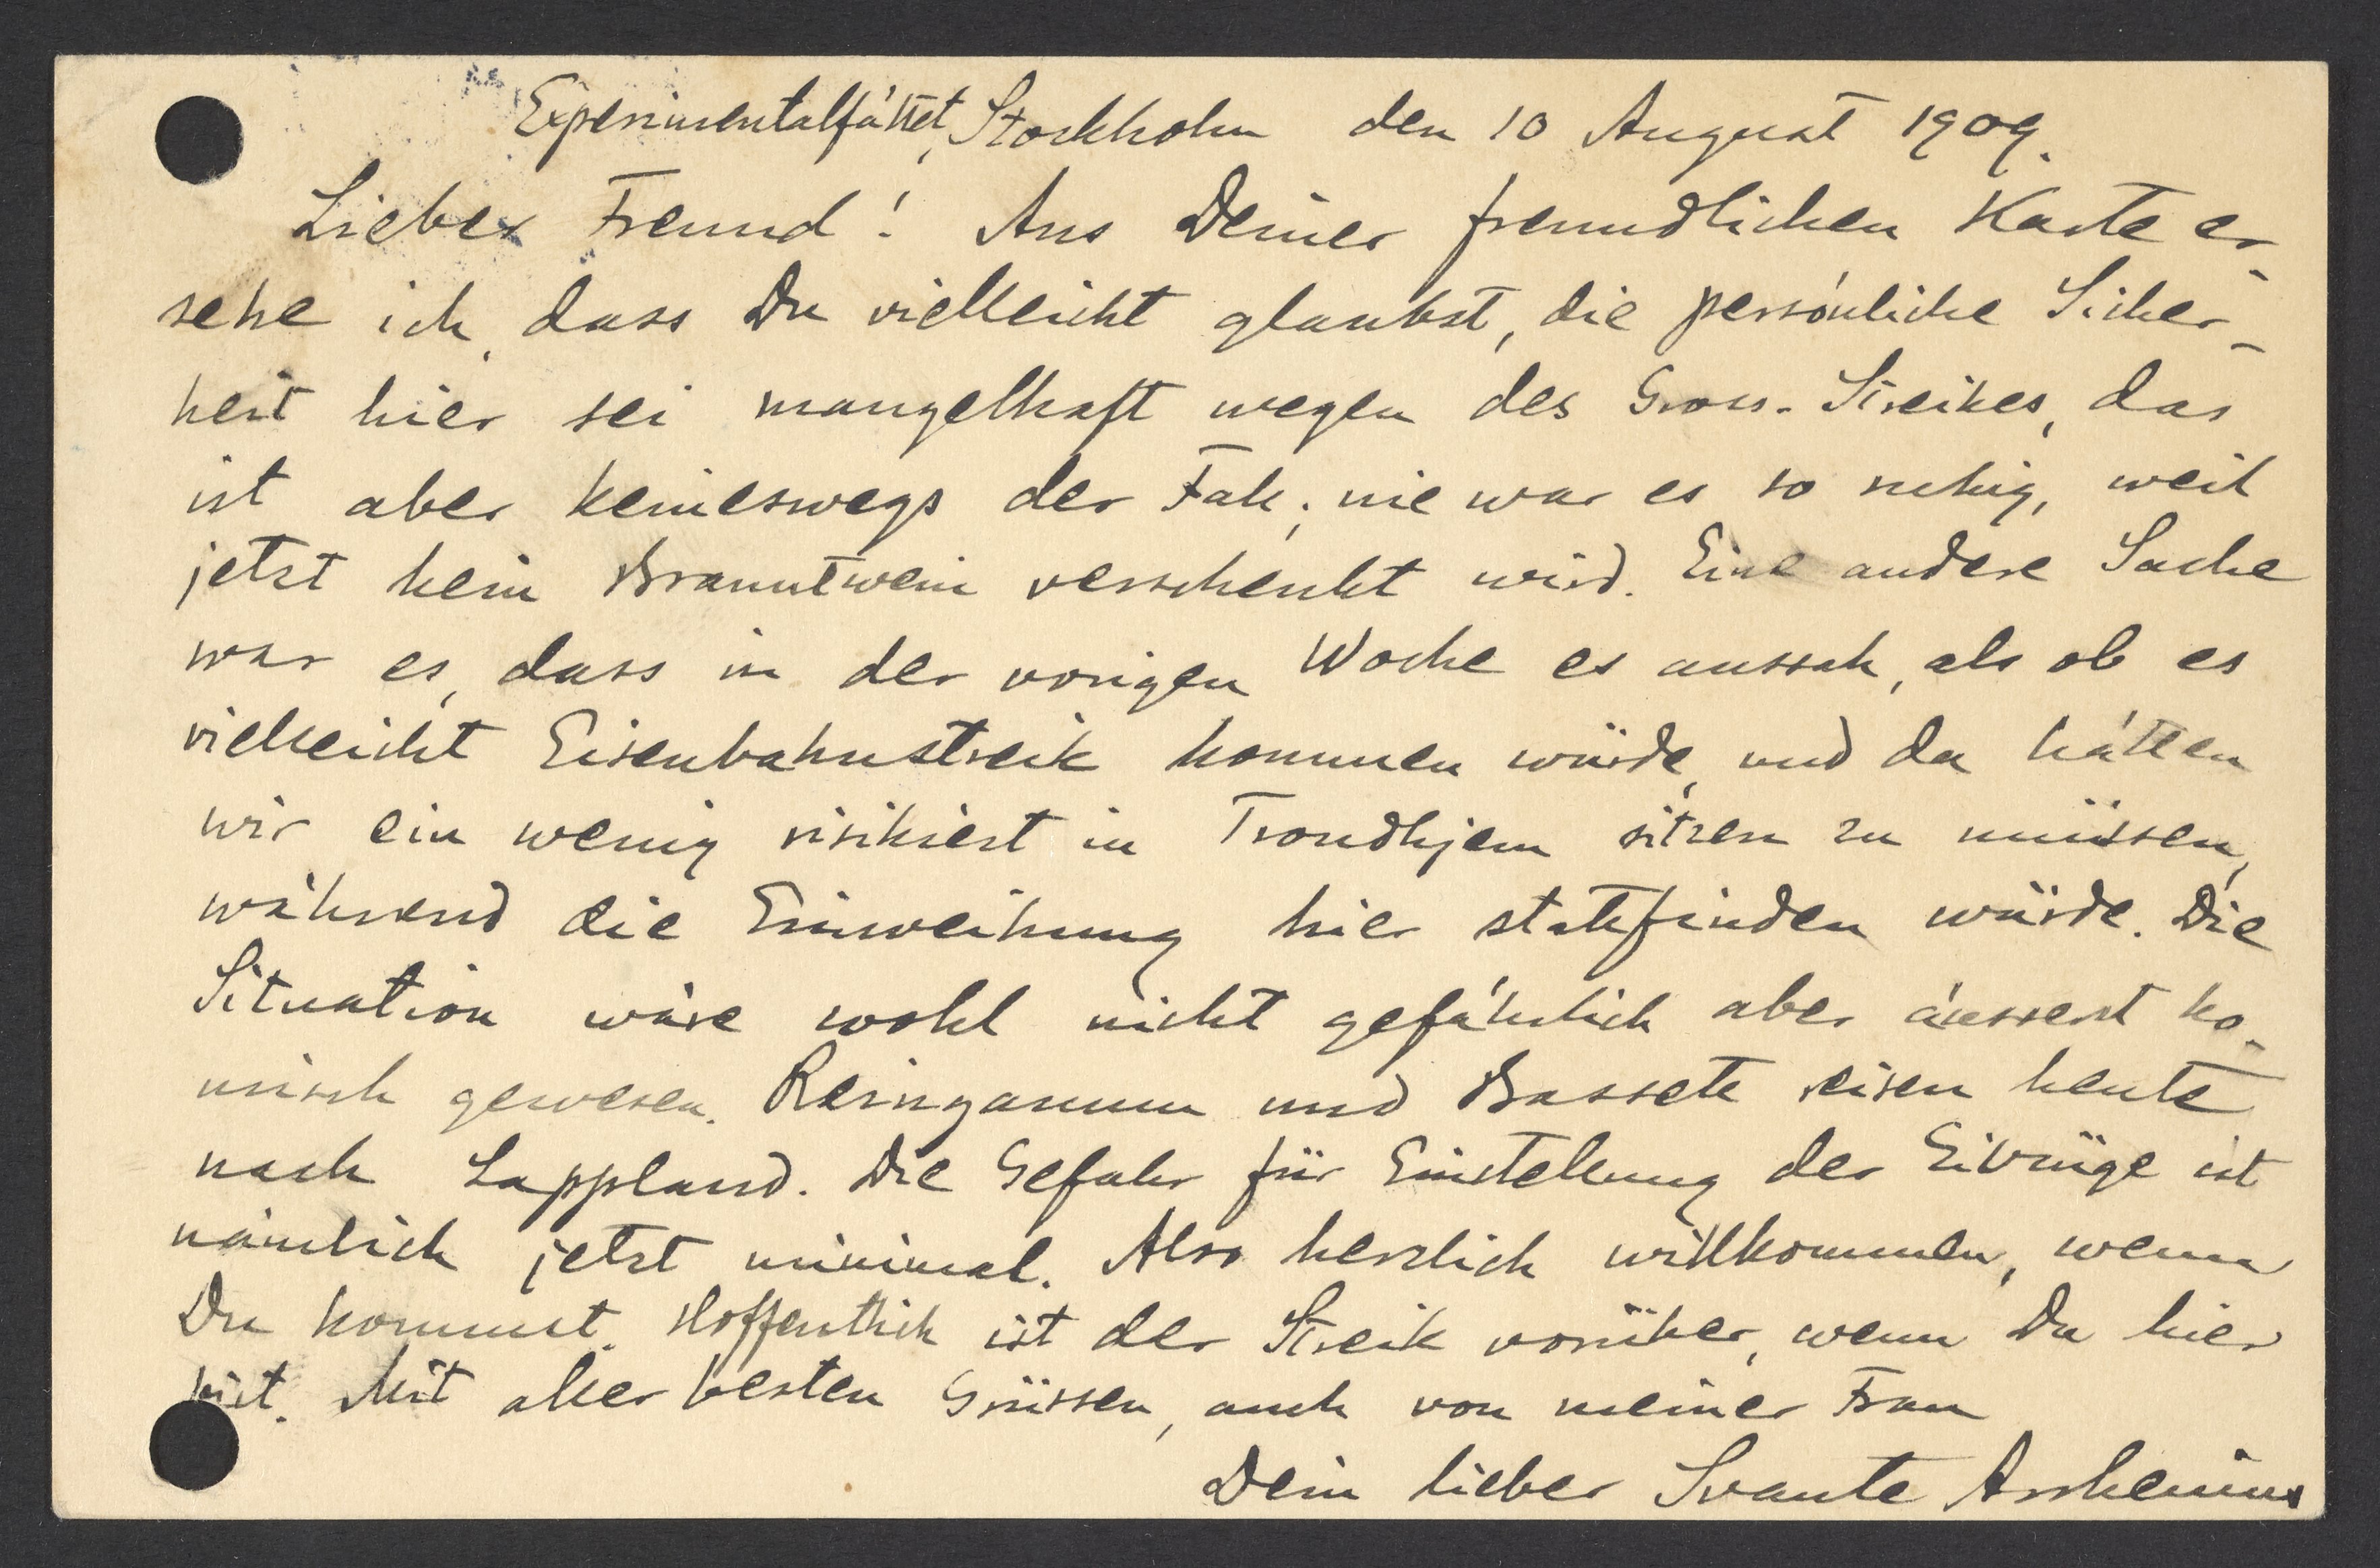 Experimentalfältet, Stockholm den 10 August 1909.
Lieber Freund! Aus Deiner freundlichen Karte er-
sehe ich, dass Du vielleicht glaubst, die persönliche Sicher-
heit hier sei mangelhaft wegen des Gross-Streikes, das
ist aber keineswegs der Fall; nie war es so ruhig, weil
jetzt kein Branntwein verschenkt wird. Eine andere Sache
war es, dass in der vorigen Woche es aussah, als ob es
vielleicht Eisenbahnstreik kommen würde, und da hätten
wir ein wenig risikiert in Trondhjem sitzen zu müssen,
während die Einweihung hier stattfinden würde. Die
Situation wäre wohl nicht gefährlich aber äusserst ko-
misch gewesen. Reinganum und Bassett reisen heute
nach Lappland. Die Gefahr für Einstellung der Eilzüge ist
nämlich jetzt minimal. Also herzlich willkommen, wenn
Du kommst. Hoffentlich ist der Streik vorüber, wenn Du hier
bist. Mit aller besten Grüssen, auch von meiner Frau
Dein lieber Svante Arrhenius